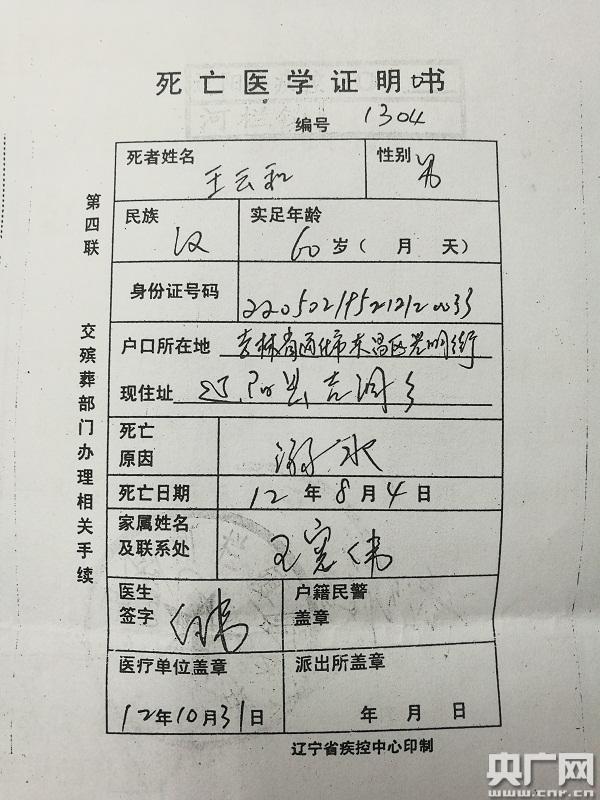 死亡医学证明书
编号 1304
死者姓名 王云和 性别 男
民族 汉 实足年龄 60 岁（ 月 天）
身份证号码 220502195212120033
户口所在地 吉林省通化市东昌区光明街
现住址 辽阳县吉洞乡
死亡
原因 溺水
死亡日期 12 年 8 月 4 日
家属姓名
及联系处 王宪伟
医生
签字
户籍民警
盖章
医疗单位盖章 派出所盖章
12 年 10 月 31 日 年 月 日
辽宁省疾控中心印制
第四联 交殡葬部门办理相关手续
央广网
www.cnr.cn